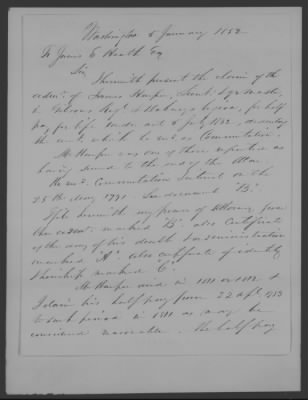 Washington 5 January 1852
To James E Heath Esq
Sir
I herewith present the claim of the
adm. of James Harper, Lieut. & Qr Master
in Nelsons Regt, for half
pay for life under act 5 July 1832, deducting
the amt which he recd as Commutation.
Mr Harper was one of those reported as
having served to the end of the War.
He recd Commutation Interest on the
25th May 1791. See document "B".
I file herewith my power of Attorney from
the admr. marked " also Certificate
of the day of his death & administration
marked "A", also certificate of identity
& heirship marked "C".
Mr Harper died in 1811 or 1812 &
I claim his half pay from 22 Apl 1783
to such period in 1811 as may be
considered reasonable. The half pay